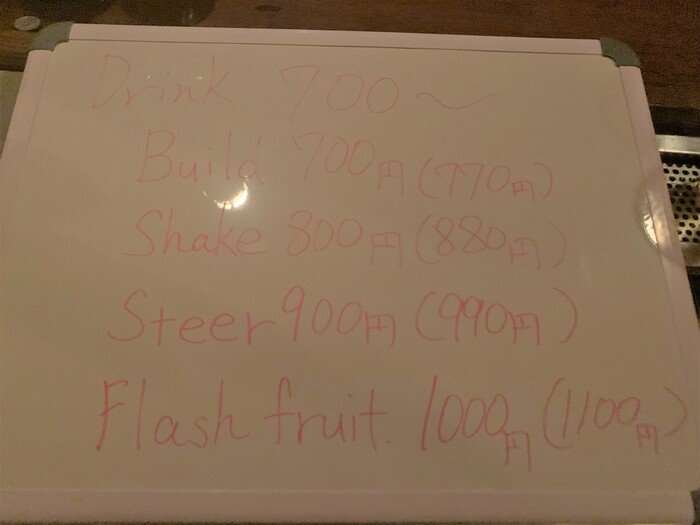 Drink 700～
Build 700円(770円)
Shake 800円(880円)
Steer 900円(990円)
Flash fruit. 1000円(1100円)